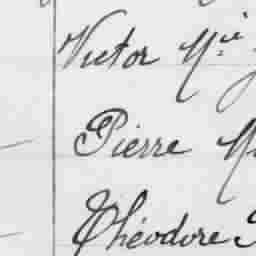 Victor M.ie
Pierre M
Théodore